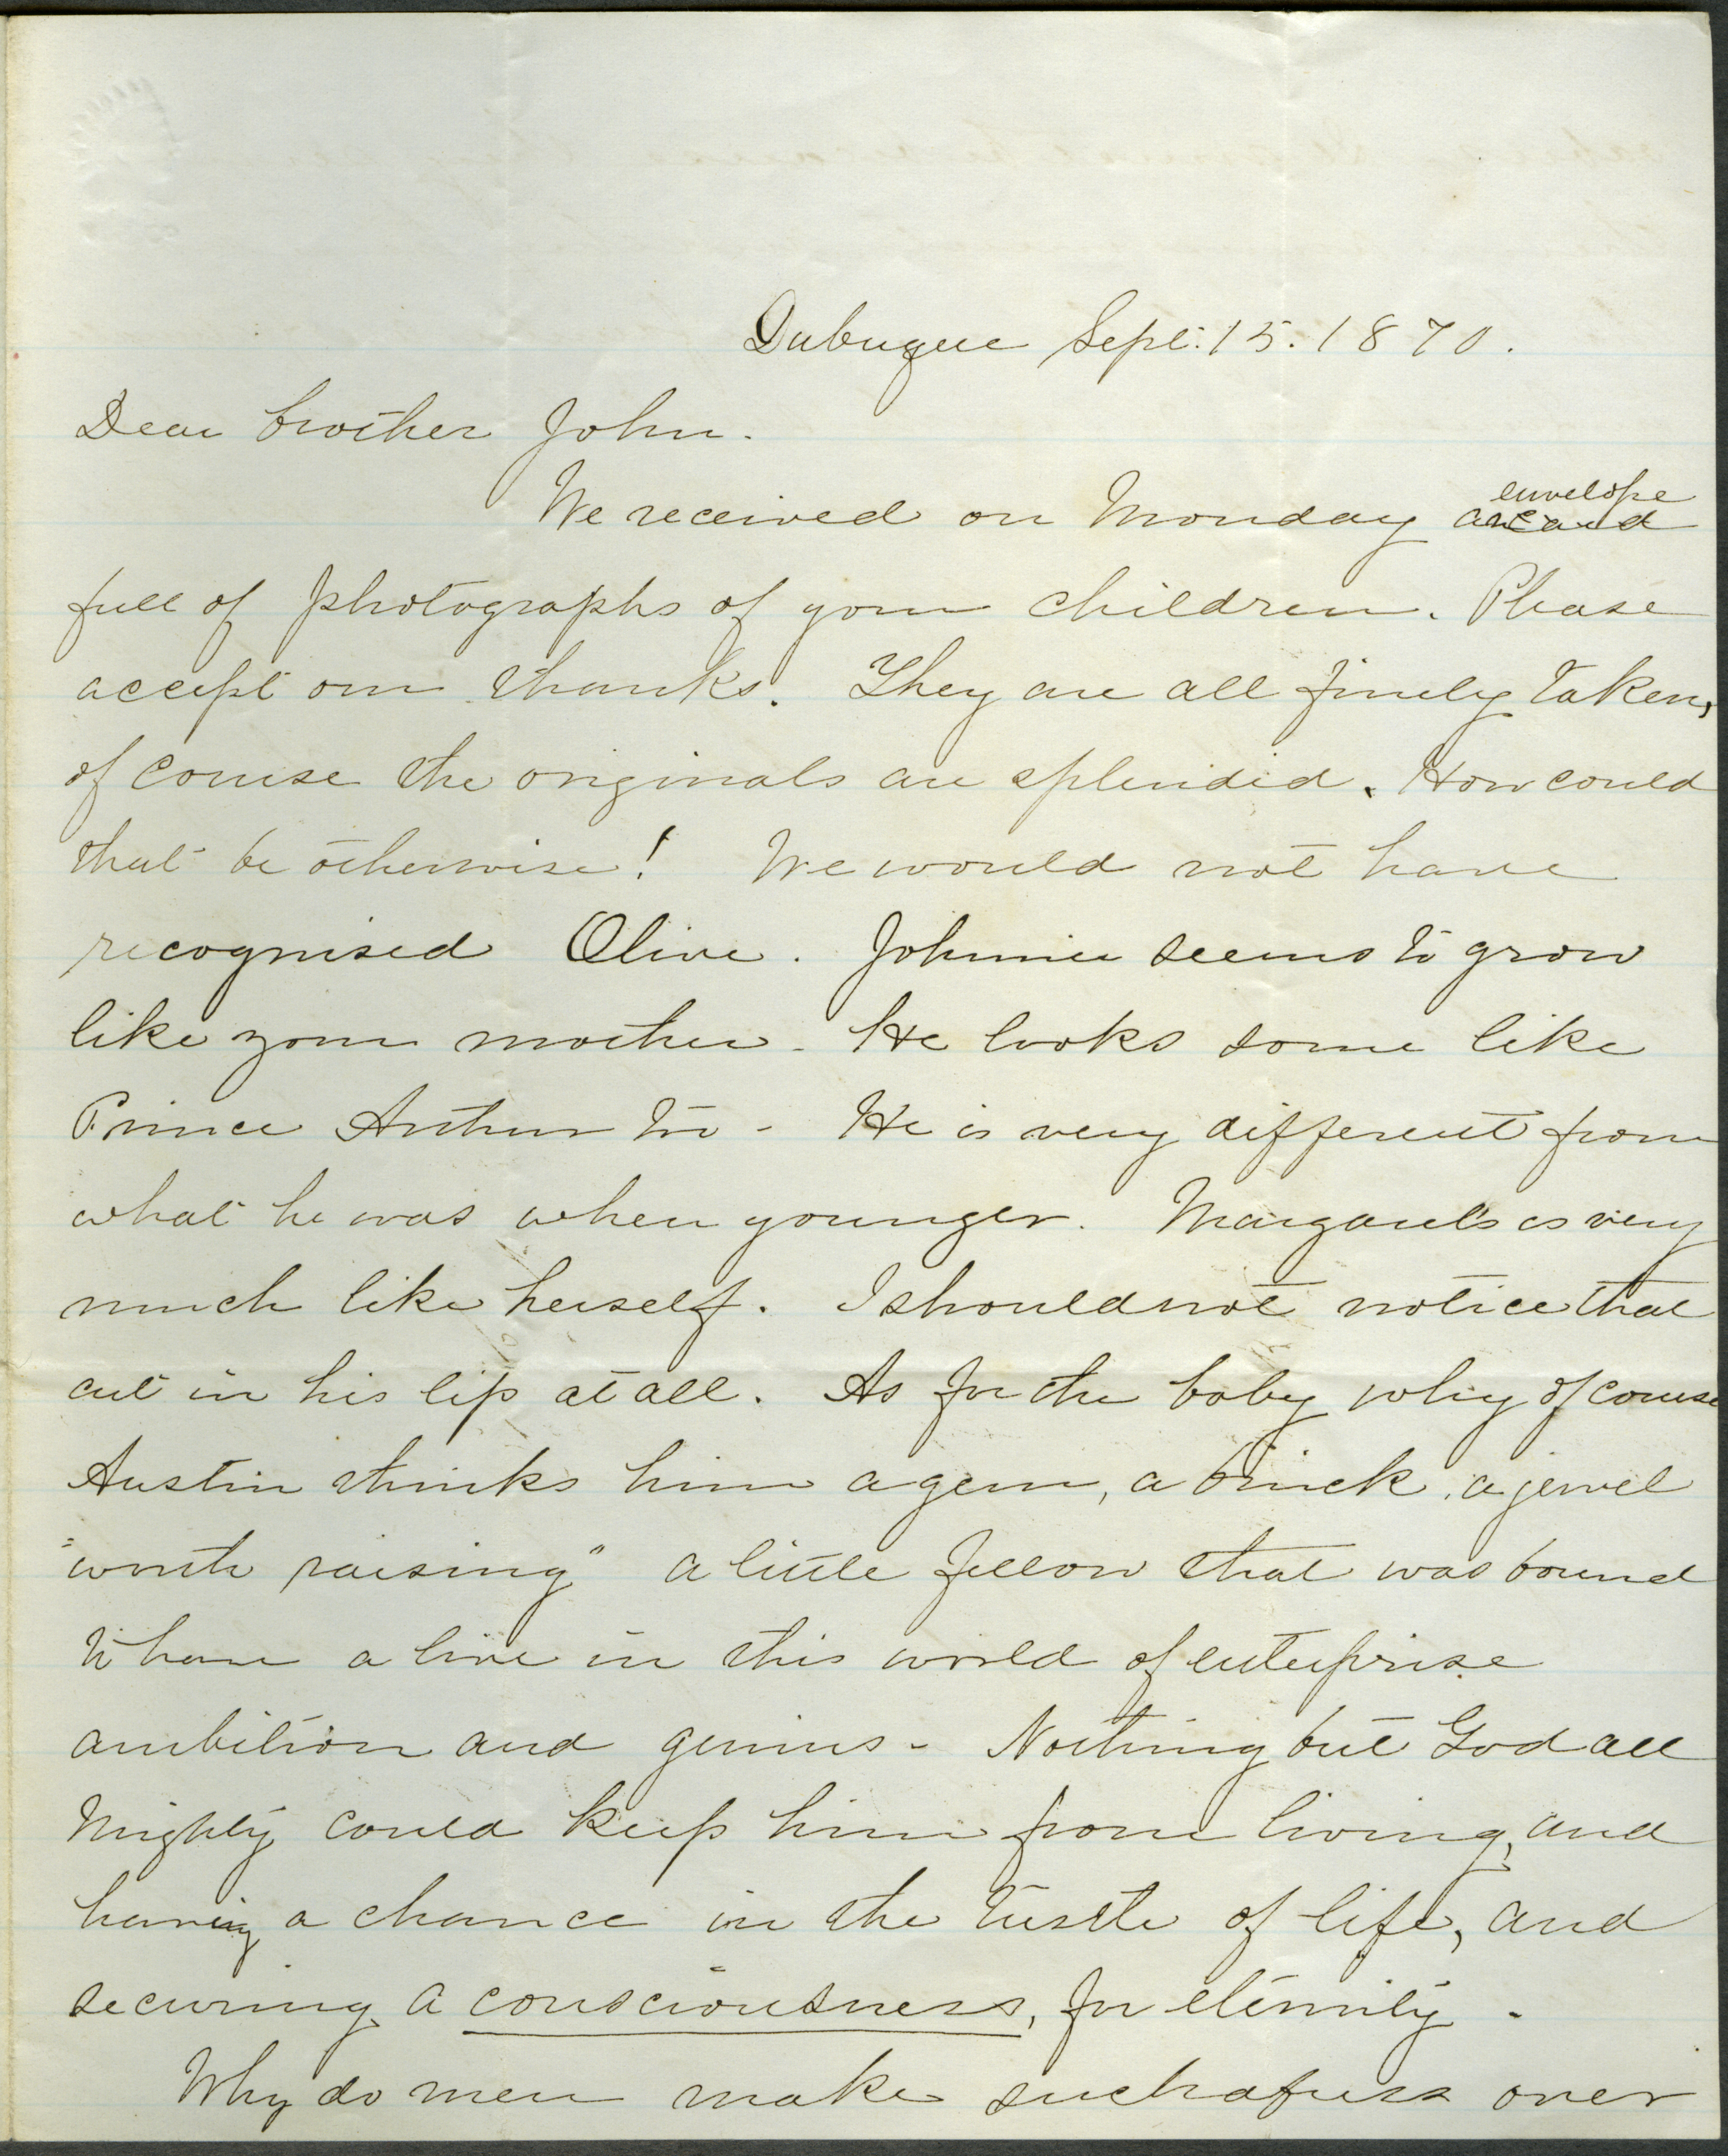 Dubuque Sept. 15. 1870.
Dear brother John.
We received on Monday an envelope
full of photographs of your children. Please
accept our thanks. They are all finely taken,
of course the originals are splendid. How could
that be otherwise! We would not have
recognised Olive. Johnnie seems to grow
like your mother - He looks some like
Prince Arthur too - He is very different from
what he was when younger. Margaret's is very
much like herself. I should not notice that
cut in his lip at all. As for the baby why of course
Austin thinks him a gem, a brick, a jewel
"worth raising" a little fellow that was bound
to have a live in this world of enterprise
ambition and genius - Nothing but God all
mighty could keep him from living, and
having a chance in the tustle of life, and
securing a consciousness, for eternity -
Why do men make such a fuss over